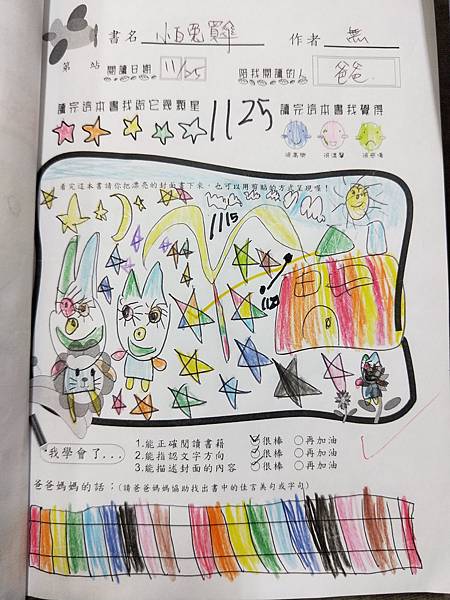 書名 小白兔買傘 作者 無
第 站 閱讀日期 11/25 陪我閱讀的人 爸爸
讀完這本書我給它幾顆星 1125 讀完這本書我覺得
很高興 很溫馨 很感傷
看完這本書請你把漂亮的封面畫下來，也可以用剪貼的方式呈現喔！
11/5
我學會了... 1.能正確閱讀書籍 很棒 再加油
2.能指認文字方向 很棒 再加油
3.能描述封面的內容 很棒 再加油
爸爸媽媽的話：(請爸爸媽媽協助找出書中的佳言美句或字句)